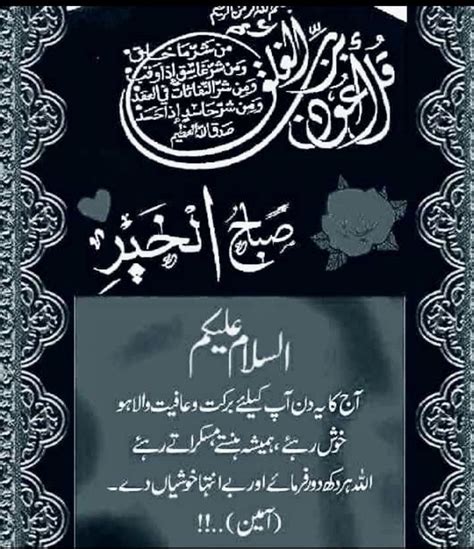 بسم الله الرحمن الرحيم
قل أعوذ برب الفلق
من شر ما خلق
ومن شر غاسق إذا وقب
ومن شر النفاثات في العقد
ومن شر حاسد إذا حسد
صدق الله العظيم
صباح الخير
السلام علیکم
آج کا یہ دن آپ کیلئے برکت و عافیت والا ہو
خوش رہئے ، ہمیشہ ہنستے مسکراتے رہئے
اللہ ہر دکھ دور فرمائے اور بے انتہا خوشیاں دے۔
(آمین)..!!